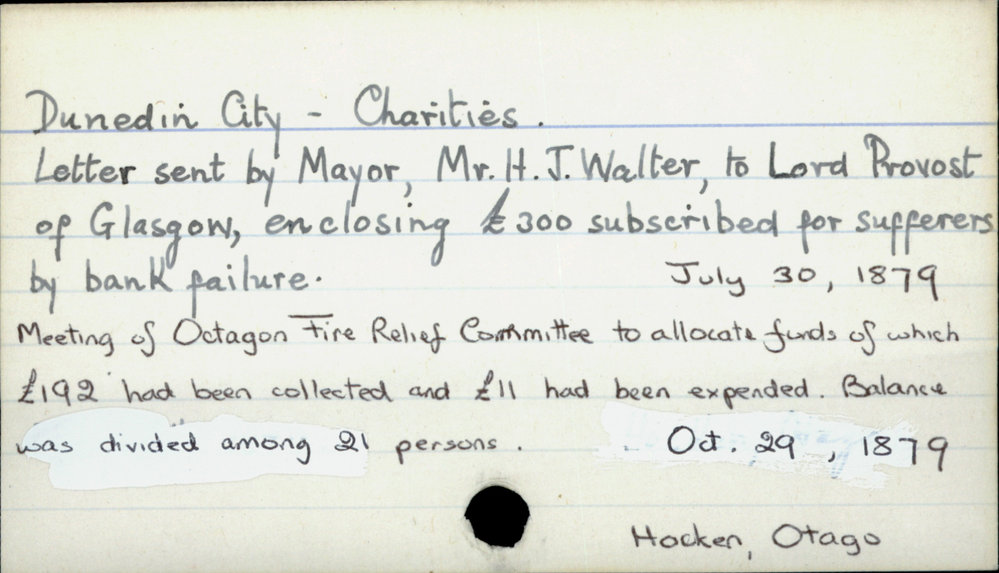 Dunedin City - Charities.
Letter sent by Mayor, Mr. H. J. Walter, to Lord Provost
of Glasgow, enclosing £300 subscribed for sufferers
by bank failure. July 30, 1879
Meeting of Octagon Fire Relief Committee to allocate funds of which
£192 had been collected and £11 had been expended. Balance
was divided among 21 persons. Oct. 29, 1879
Hocken, Otago